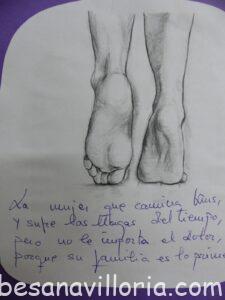 besanavilloria.com
La mujer que camina
y sufre las llagas del tiempo,
pero no le importa el dolor,
porque su familia es lo prime
besanavilloria.com